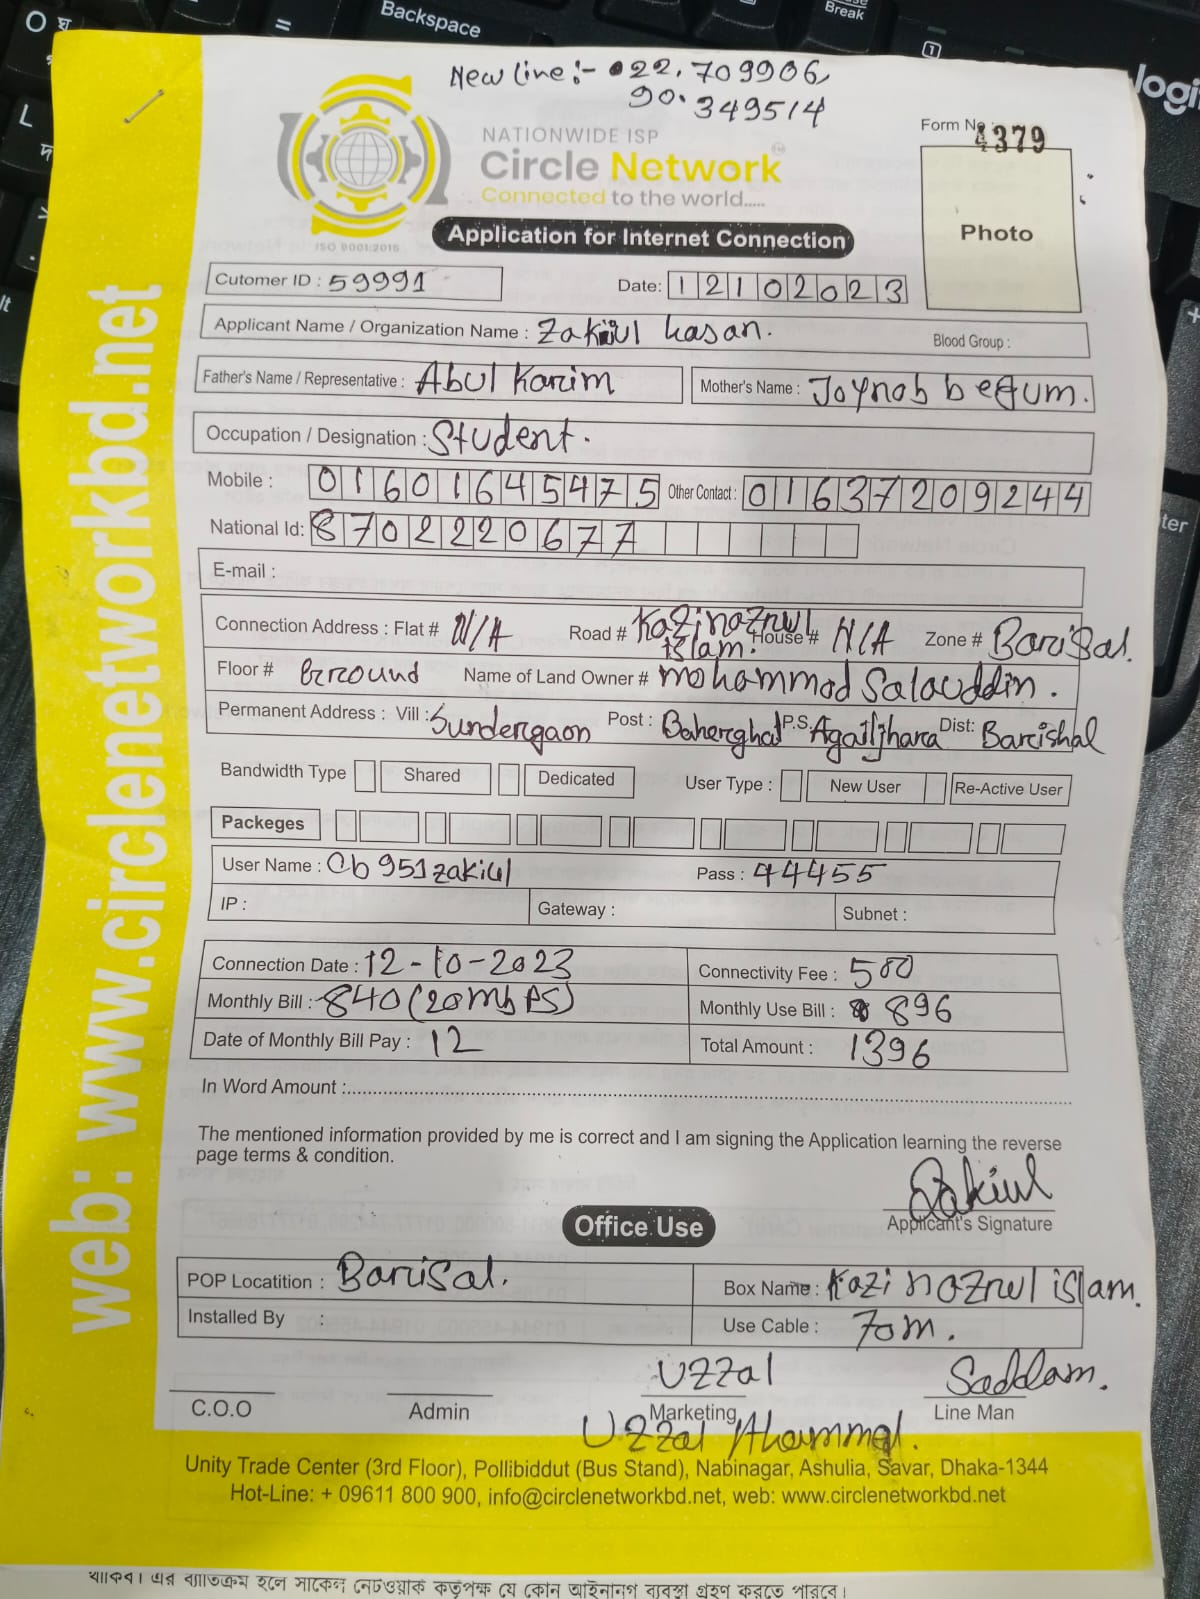 New Line :- 22.709906
90.349514
NATIONWIDE ISP
Circle Network
Connected to the world.....
ISO 9001:2015
Form No : 4379
Photo
Application for Internet Connection
Cutomer ID : 59991 Date: 12102023
Applicant Name / Organization Name : Zakiul hasan. Blood Group :
Father's Name / Representative : Abul Karim Mother's Name : Joynob begum.
Occupation / Designation : Student.
Mobile : 01601645475 Other Contact : 01637209244
National Id: 8702220677
E-mail :
Connection Address : Flat # N/A Road # Kazi nazrul islam. House # N/A Zone # Barisal.
Floor # Grround Name of Land Owner # mohammad Salauddin.
Permanent Address : Vill : Sundergaon Post : Baherghat P.S. Agailjhara Dist: Barishal
Bandwidth Type Shared Dedicated User Type : New User Re-Active User
Packeges
User Name : Cb951zakiul Pass : 44455
IP : Gateway : Subnet :
Connection Date : 12-10-2023 Connectivity Fee : 500
Monthly Bill : 840 (20mbPS) Monthly Use Bill : 896
Date of Monthly Bill Pay : 12 Total Amount : 1396
In Word Amount :
The mentioned information provided by me is correct and I am signing the Application learning the reverse
page terms & condition.
Zakiul
Applicant's Signature
Office Use
POP Locatition : Barisal. Box Name : Kazi nazrul islam.
Installed By : Use Cable : 70m.
Uzzal Saddam.
C.O.O Admin Marketing Line Man
Uzzal Ahammed.
Unity Trade Center (3rd Floor), Pollibiddut (Bus Stand), Nabinagar, Ashulia, Savar, Dhaka-1344
Hot-Line: + 09611 800 900, info@circlenetworkbd.net, web: www.circlenetworkbd.net
web: www.circlenetworkbd.net
থাকিব। এর ব্যতিক্রম হলে সার্কেল নেটওয়ার্ক কর্তৃপক্ষ যে কোন আইনানুগ ব্যবস্থা গ্রহণ করতে পারবে।
Backspace
Break
logi